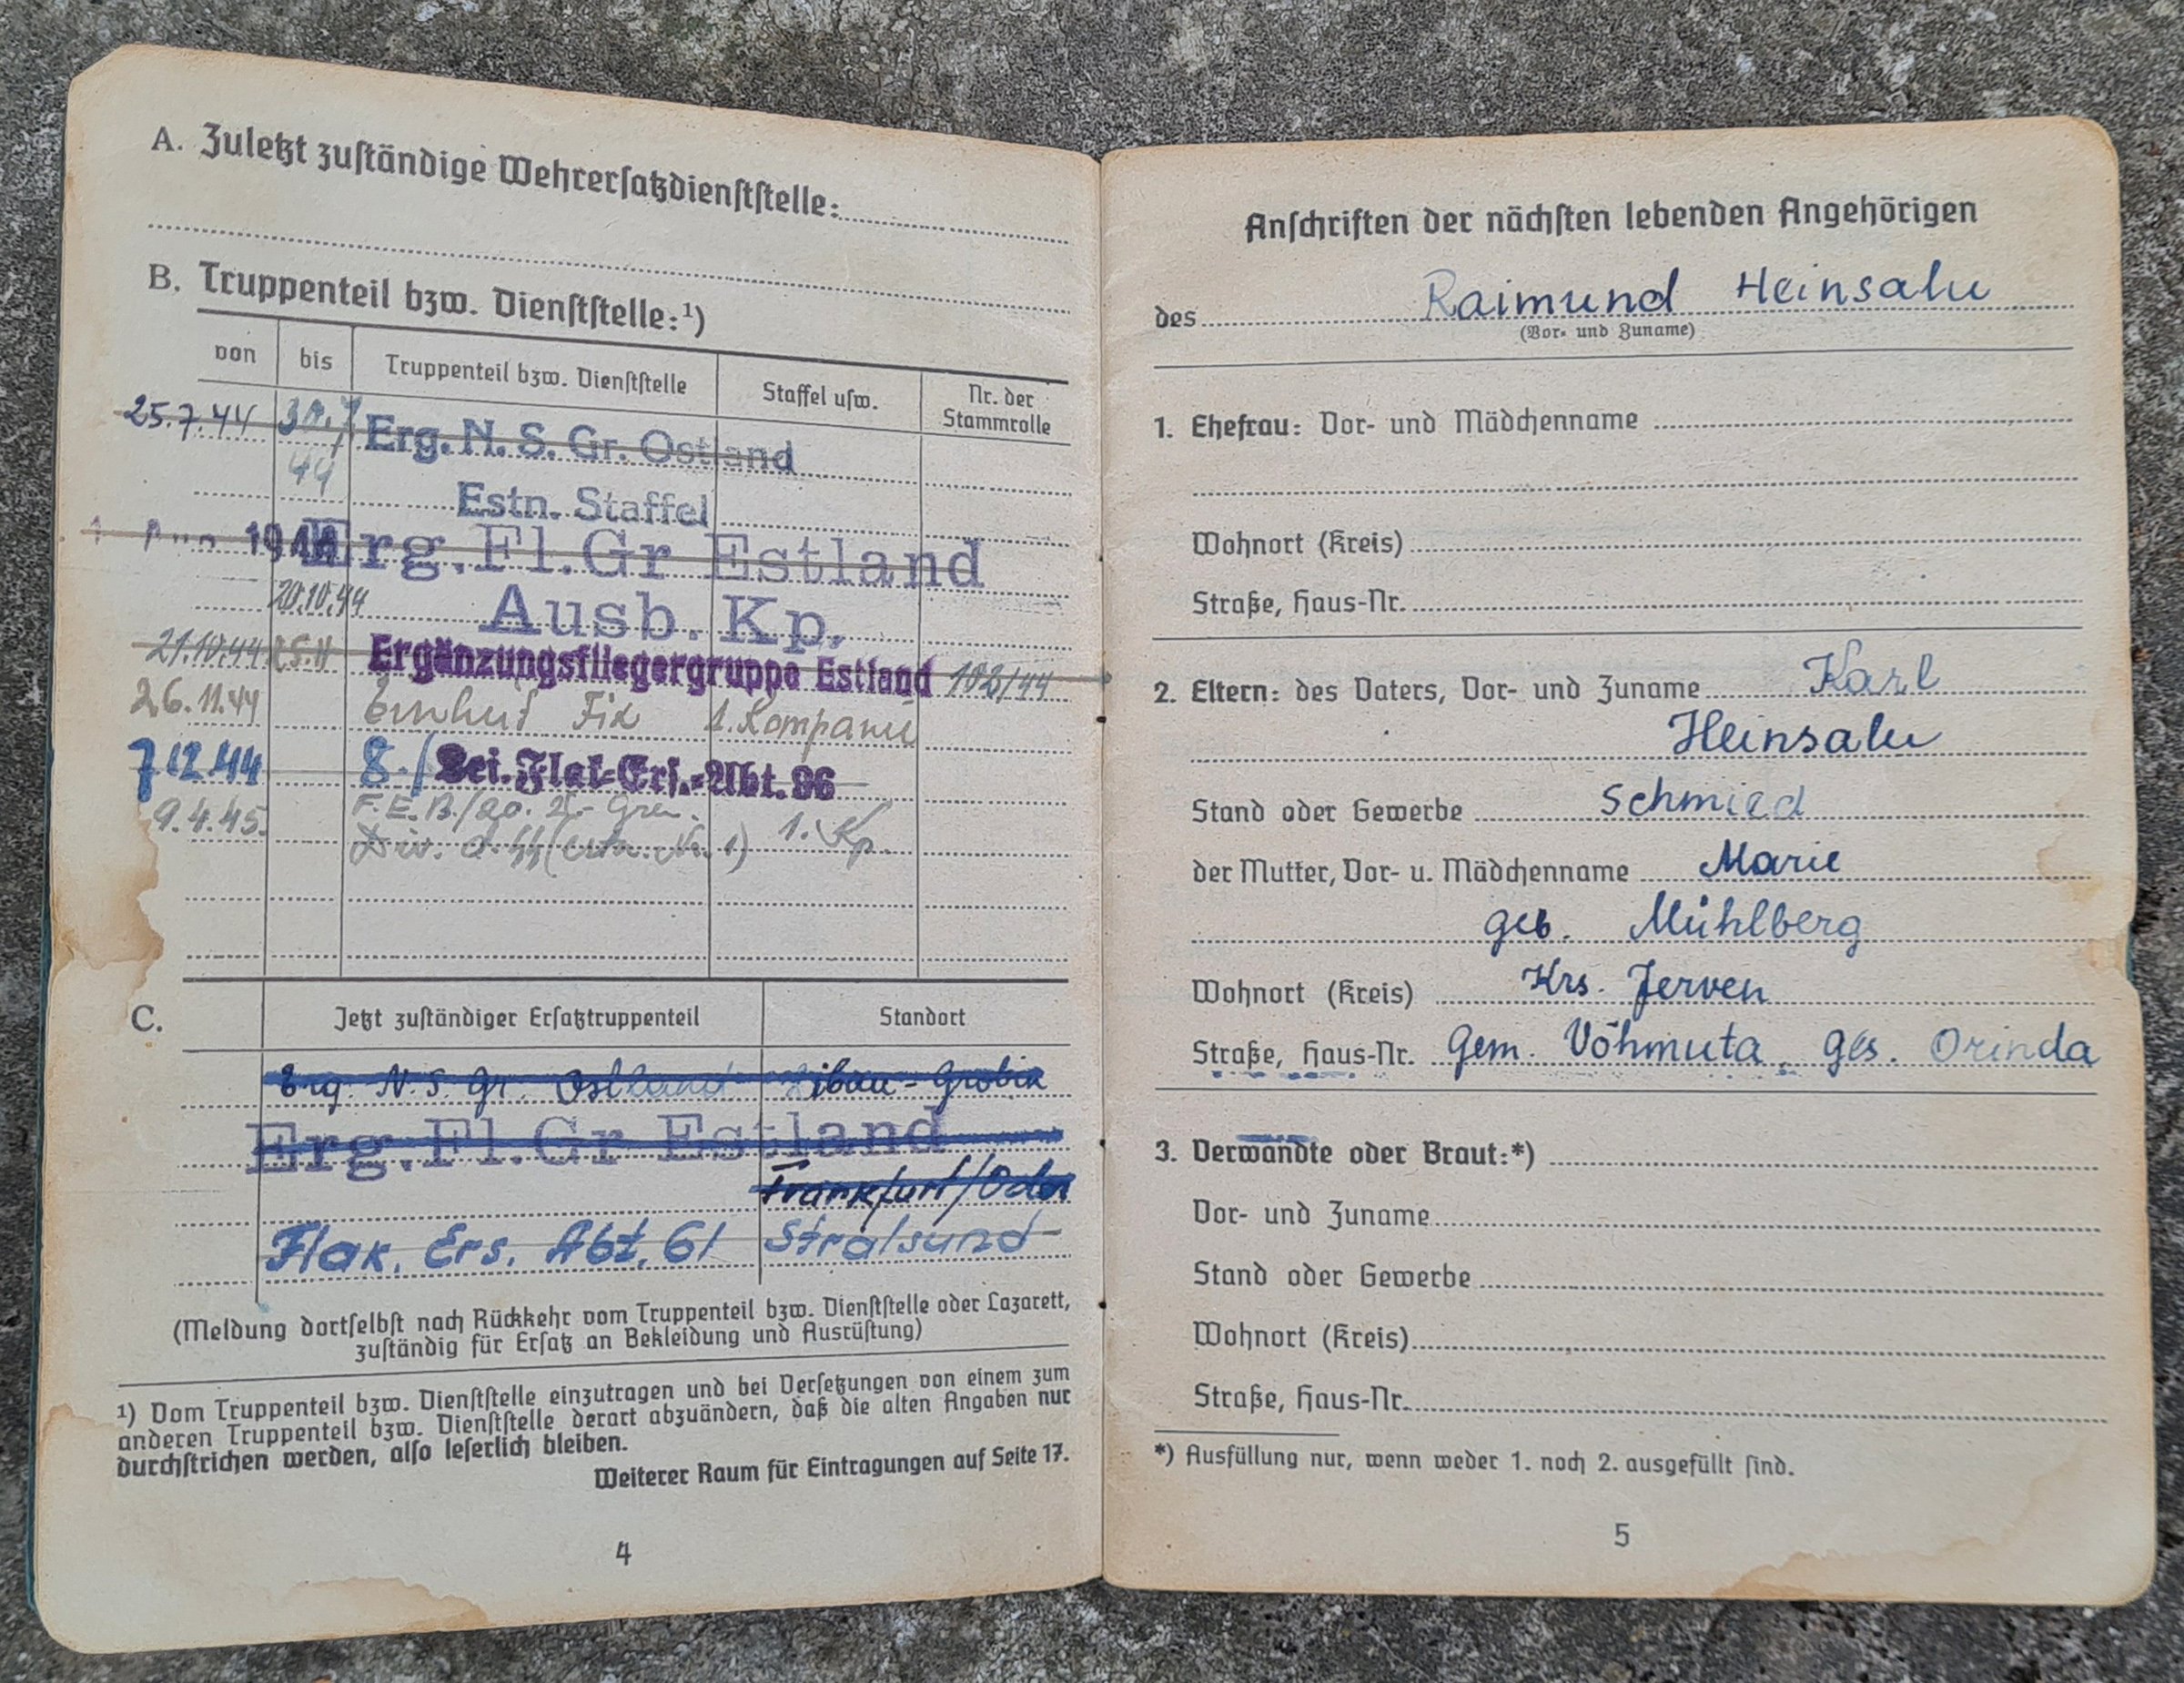 A. Zuletzt zuständige Wehrersatzdienststelle:
B. Truppenteil bzw. Dienststelle:¹)
von bis Truppenteil bzw. Dienststelle Staffel usw. Nr. der Stammrolle
25.7.44 Erg. N. S. Gr. Ostland
44 Estn. Staffel
Erg. Fl. Gr Estland
20.10.44 Ausb. Kp.
21.10.44 25.11 Ergänzungsfliegergruppe Estland
26.11.44 Einheit 1. Kompanie
7.12.44 8./ Lei. Flak-Ers.-Abt. 96
9.4.45. F.E.B./20. Gren.
Div. d. SS (estn. Nr. 1) 1. Kp.
C. Jetzt zuständiger Ersatztruppenteil Standort
Erg. N. S. Gr. Ostland Libau - Grobin
Erg. Fl. Gr Estland
Frankfurt/Oder
Flak. Ers. Abt. 61 Stralsund
(Meldung dortselbst nach Rückkehr vom Truppenteil bzw. Dienststelle oder Lazarett,
zuständig für Ersatz an Bekleidung und Ausrüstung)
¹) Vom Truppenteil bzw. Dienststelle einzutragen und bei Versetzungen von einem zum
anderen Truppenteil bzw. Dienststelle derart abzuändern, daß die alten Angaben nur
durchstrichen werden, also leserlich bleiben.
Weiterer Raum für Eintragungen auf Seite 17.
4
Anschriften der nächsten lebenden Angehörigen
des Raimund Heinsalu
(Vor- und Zuname)
1. Ehefrau: Vor- und Mädchenname
Wohnort (Kreis)
Straße, Haus-Nr.
2. Eltern: des Vaters, Vor- und Zuname Karl
Heinsalu
Stand oder Gewerbe Schmied
der Mutter, Vor- u. Mädchenname Marie
geb. Mühlberg
Wohnort (Kreis) Krs. Jerven
Straße, Haus-Nr. Gem. Võhmuta, Ges. Orinda
3. Verwandte oder Braut:*)
Vor- und Zuname
Stand oder Gewerbe
Wohnort (Kreis)
Straße, Haus-Nr.
*) Ausfüllung nur, wenn weder 1. noch 2. ausgefüllt sind.
5